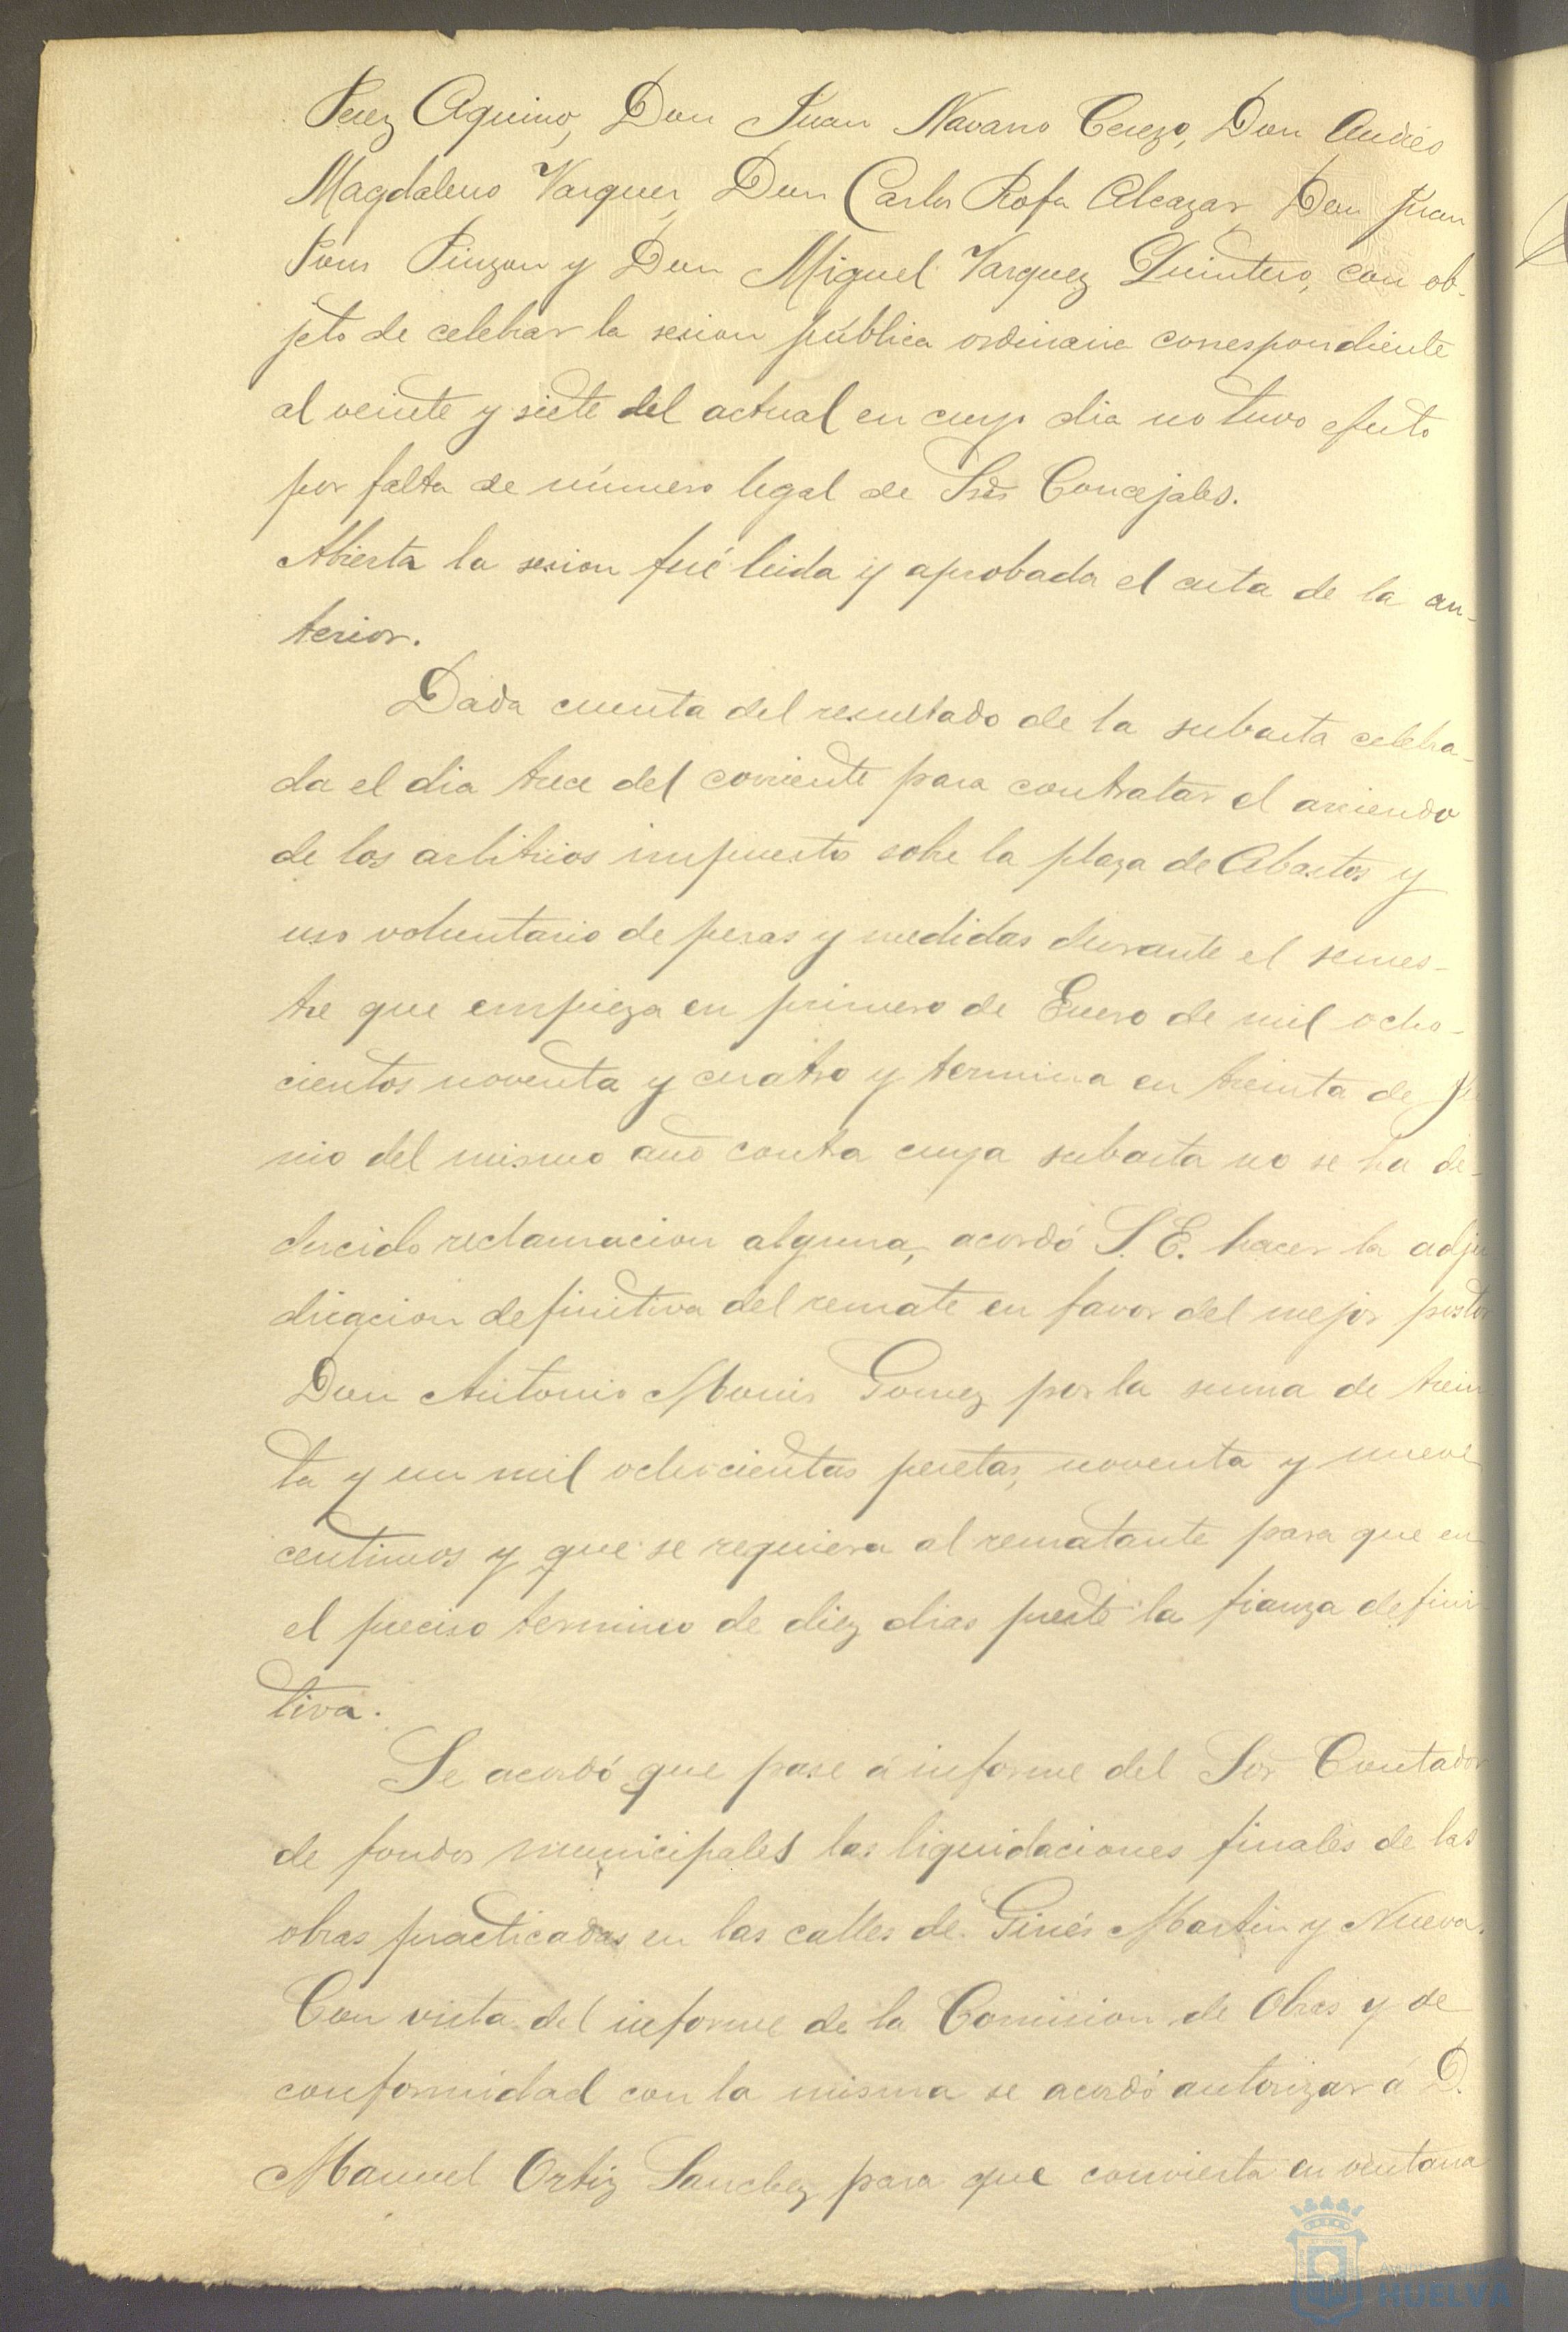 Perez Aquino, Don Juan Navarro Cerezo, Don Andrés
Magdaleno Vazquez, Don Carlos Rofa Alcazar, Don Juan
Pons Pinzon y Don Miguel Vazquez Quintero, con ob-
jeto de celebrar la sesion pública ordinaria correspondiente
al veinte y siete del actual en cuyo dia no tuvo efecto
por falta de número legal de Sres Concejales.
Abierta la sesion fué leida y aprobada el acta de la an-
terior.
Dada cuenta del resultado de la subasta celebra-
da el dia trece del corriente para contratar el arriendo
de los arbitrios impuestos sobre la plaza de Abastos y
uso voluntario de pesas y medidas durante el semes-
tre que empieza en primero de Enero de mil ocho-
cientos noventa y cuatro y termina en treinta de Ju
nio del mismo año contra cuya subasta no se ha de-
ducido reclamacion alguna, acordó S. E. hacer la adju
dicacion definitiva del remate en favor del mejor postor
Don Antonio Monis Gomez por la suma de trein
ta y un mil ochocientas pesetas, noventa y nueve
centimos y que se requiera al rematante para que en
el preciso termino de diez dias preste la fianza defini-
tiva.
Se acordó que pase á informe del Sor Contador
de fondos municipales las liquidaciones finales de las
obras practicadas en las calles de Ginés Martin y Nueva.
Con vista del informe de la Comision de Obras y de
conformidad con la misma se acordó autorizar á D.
Manuel Ortiz Sanchez para que convierta en ventana
HUELVA